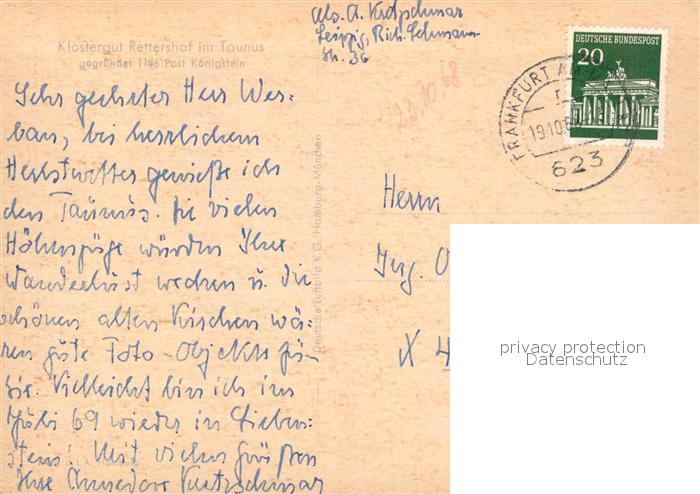 Klostergut Rettershof im Taunus
gegründet 1146 Post Königstein
Abs. A. Kretzschmar
Leipzig, Rich. Lehmann-
Str. 36
23.10.68
DEUTSCHE BUNDESPOST
20
FRANKFURT AM
19.10.6
623
Sehr geehrter Herr Wer-
ban, bei herrlichem
Herbstwetter genieße ich
den Taunus. Die vielen
Höhenzüge würden Ihre
Wanderlust wecken u. die
schönen alten Kirchen wä-
ren gute Foto-Objekte für
Sie. Vielleicht bin ich im
Juli 69 wieder in Lieben-
stein! Mit vielen Grüßen
Ihre Kretzschmar
Deutsche Luftbild K.G. Hamburg-München
Herrn
Ing. O
X 4
privacy protection
Datenschutz